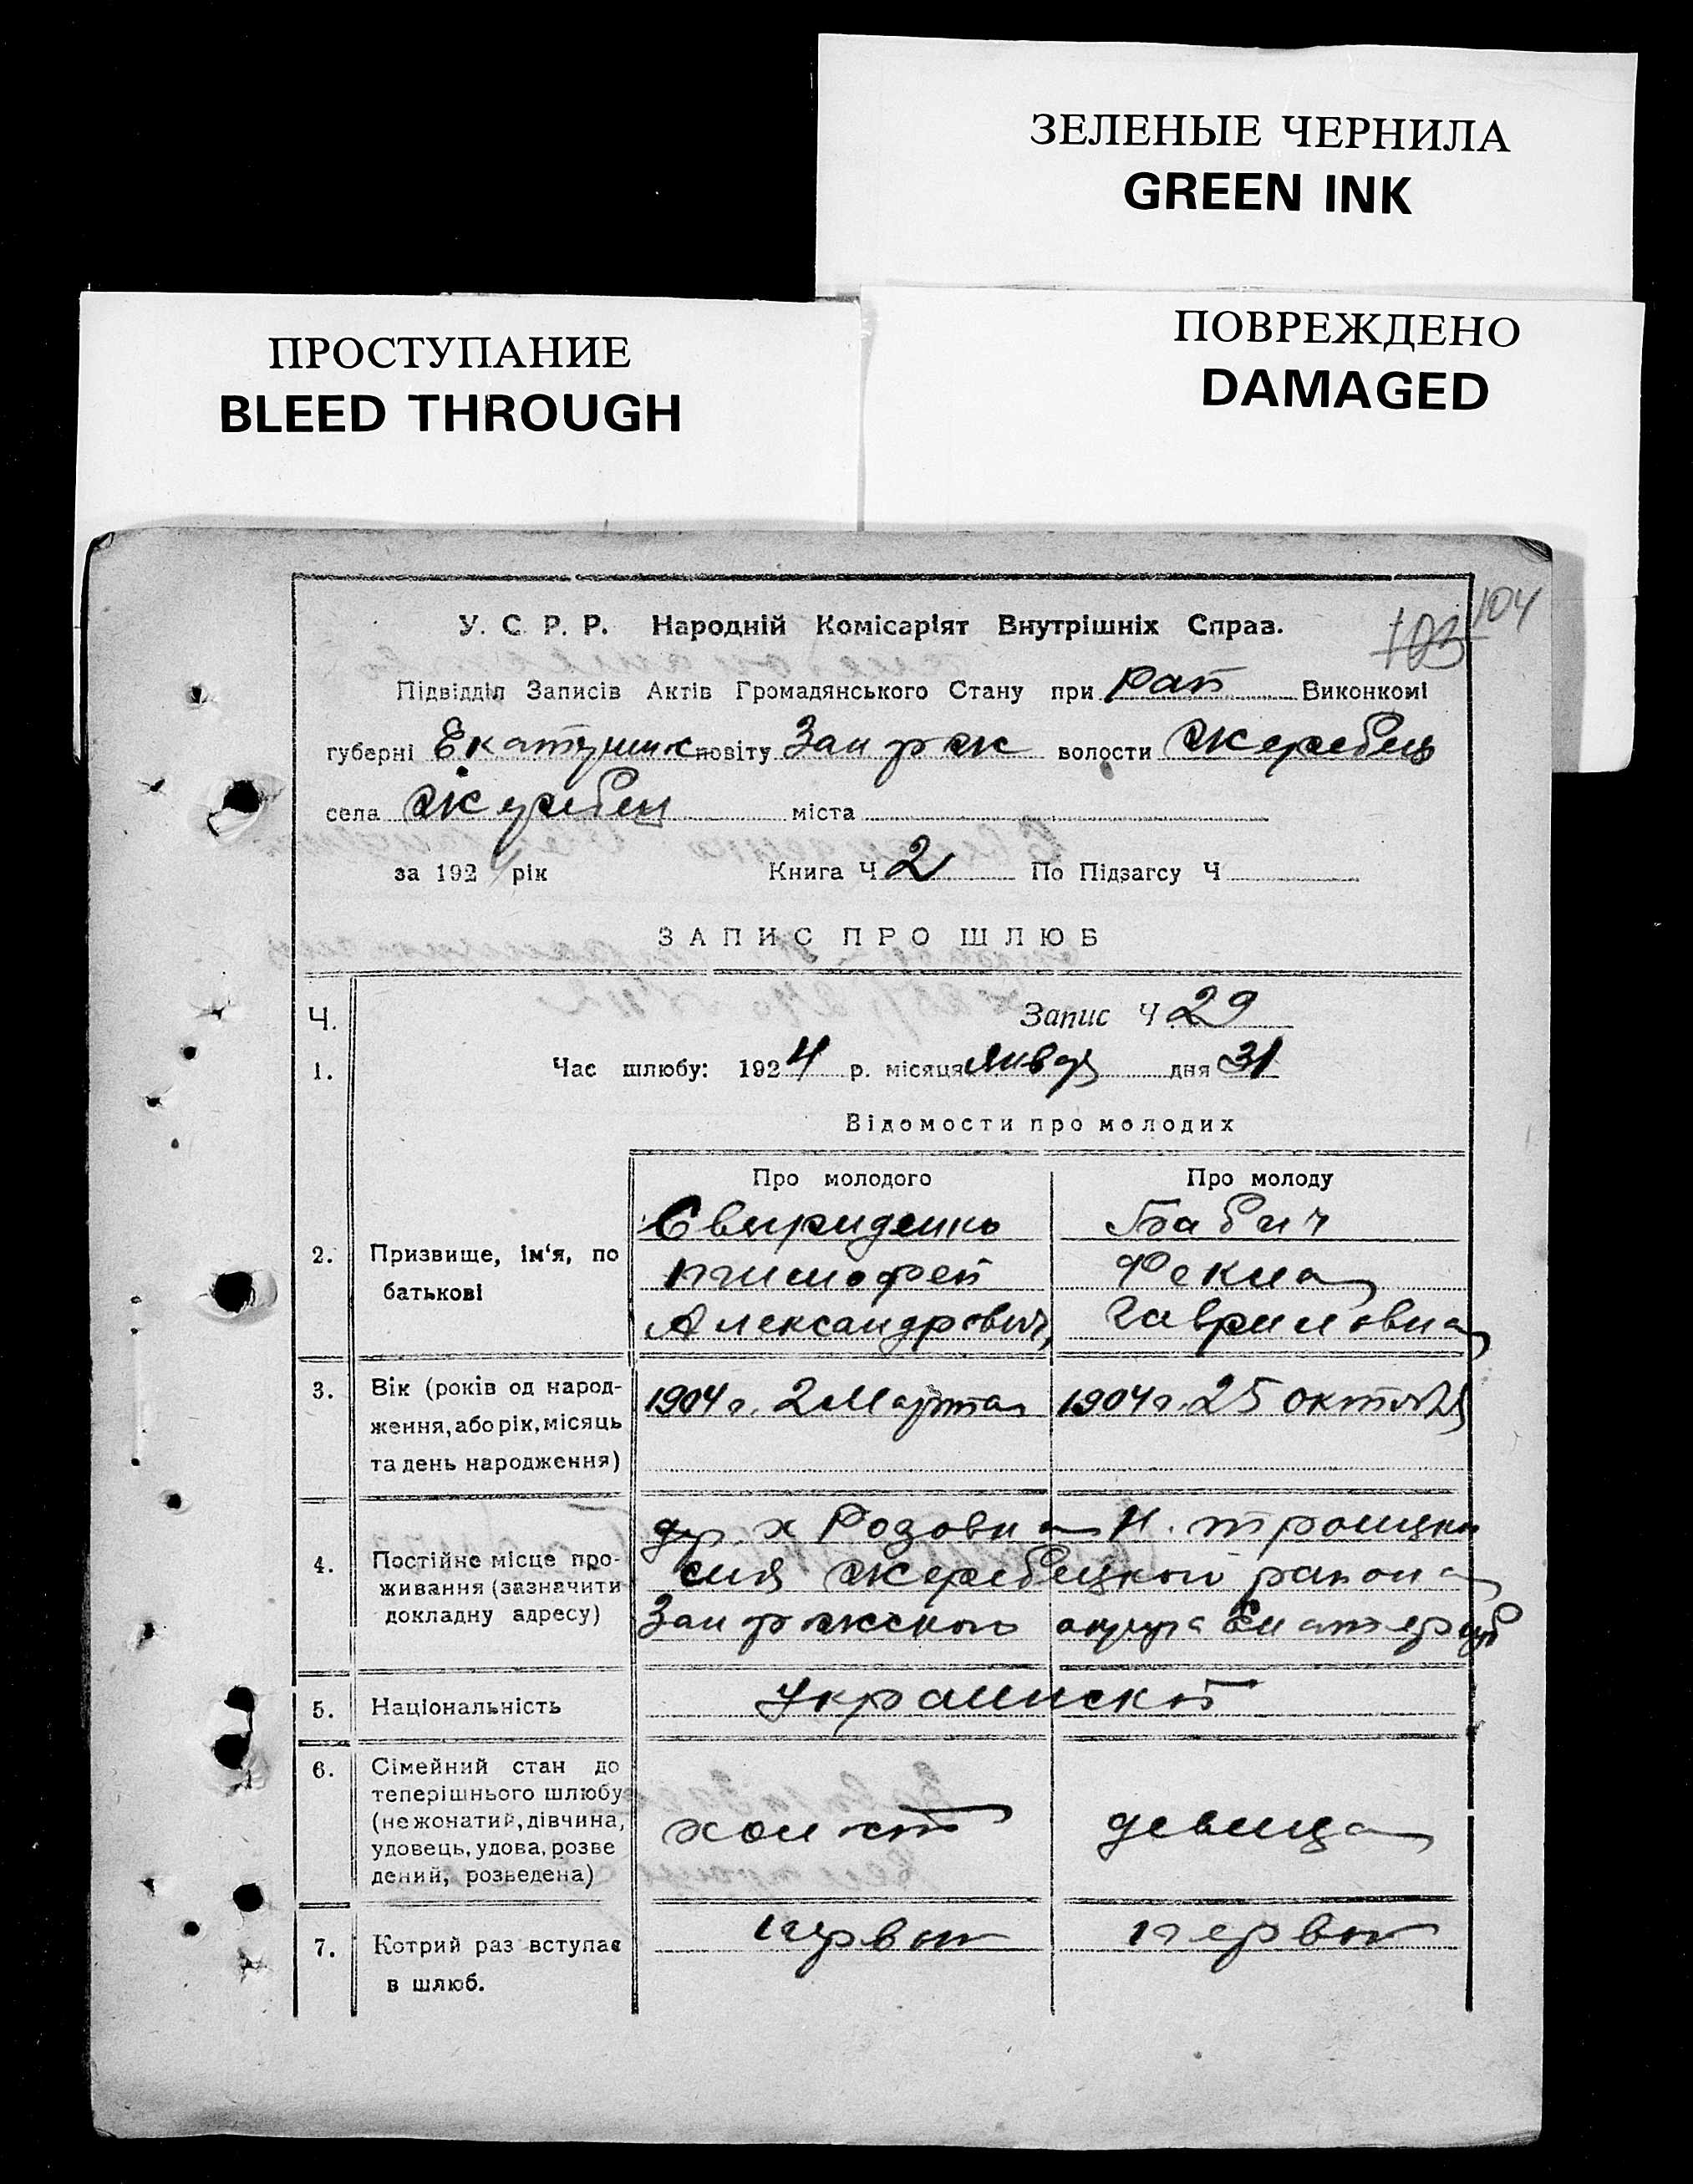 ЗЕЛЕНЫЕ ЧЕРНИЛА
GREEN INK
ПРОСТУПАНИЕ
BLEED THROUGH
ПОВРЕЖДЕНО
DAMAGED
104
103
У. С. Р. Р. Народній Комісаріят Внутрішніх Справ.
Підвідділ Записів Актів Громадянського Стану при Рай Виконкомі
губерні повіту волости Жеребец
села Жеребец міста
за 1924 рік Книга Ч 2 По Підзагсу Ч
ЗАПИС ПРО ШЛЮБ
Ч. Запис Ч. 29
1. Час шлюбу: 1924 р. місяця Январ дня 31
Відомости про молодих
Про молодого Про молоду
2. Призвище, ім'я, по батькові
Свириденко Бабич
Тимофей Фекла
Александрович Гавриловна
3. Вік (років од народ-
ження, або рік, місяць
та день народження)
1904 г. 2 Марта 1904 г. 25 октября
4. Постійне місце про-
живання (зазначити
докладну адресу)
х Розовка Н.
Жеребецкой района
Запорожского округа
5. Національність Украинской
6. Сімейний стан до
теперішнього шлюбу
(не жонатий, дівчина,
удовець, удова, розве
дений, розведена)
холост девица
7. Котрий раз вступає
в шлюб.
первой первой